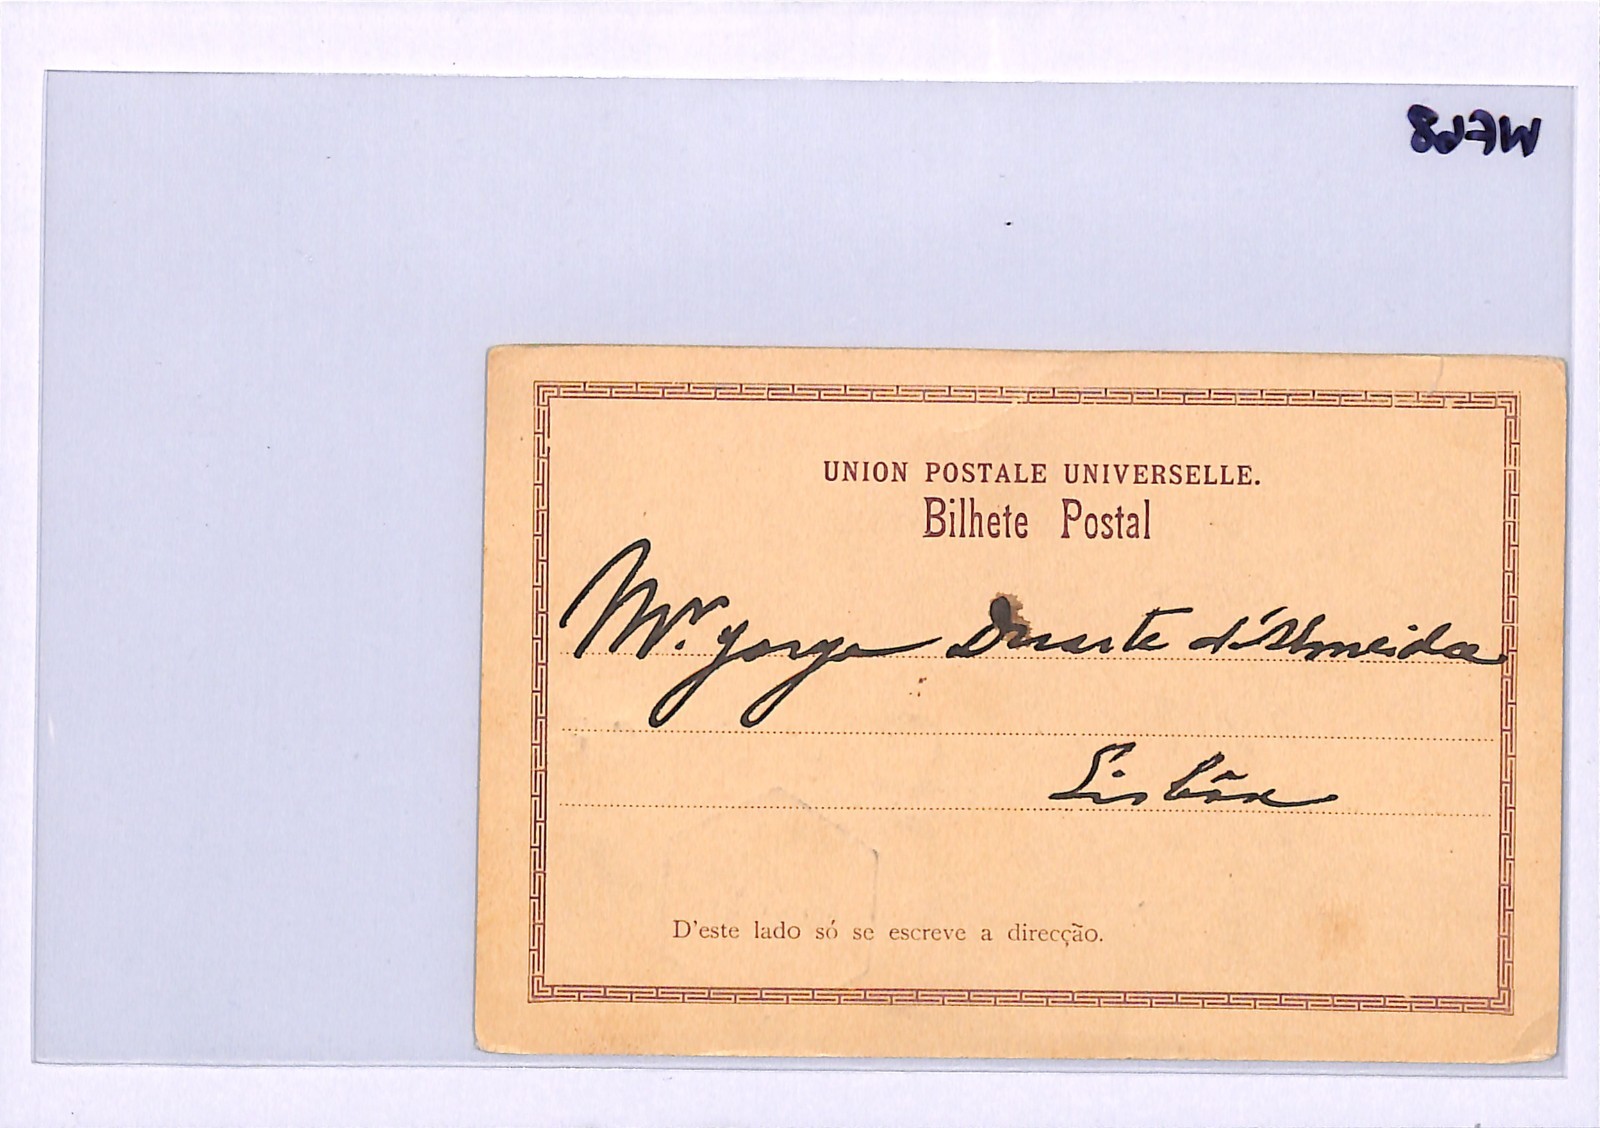 UNION POSTALE UNIVERSELLE.
Bilhete Postal
Mr. Jorge Duarte d'Almeida
Lisbôa
D'este lado só se escreve a direcção.